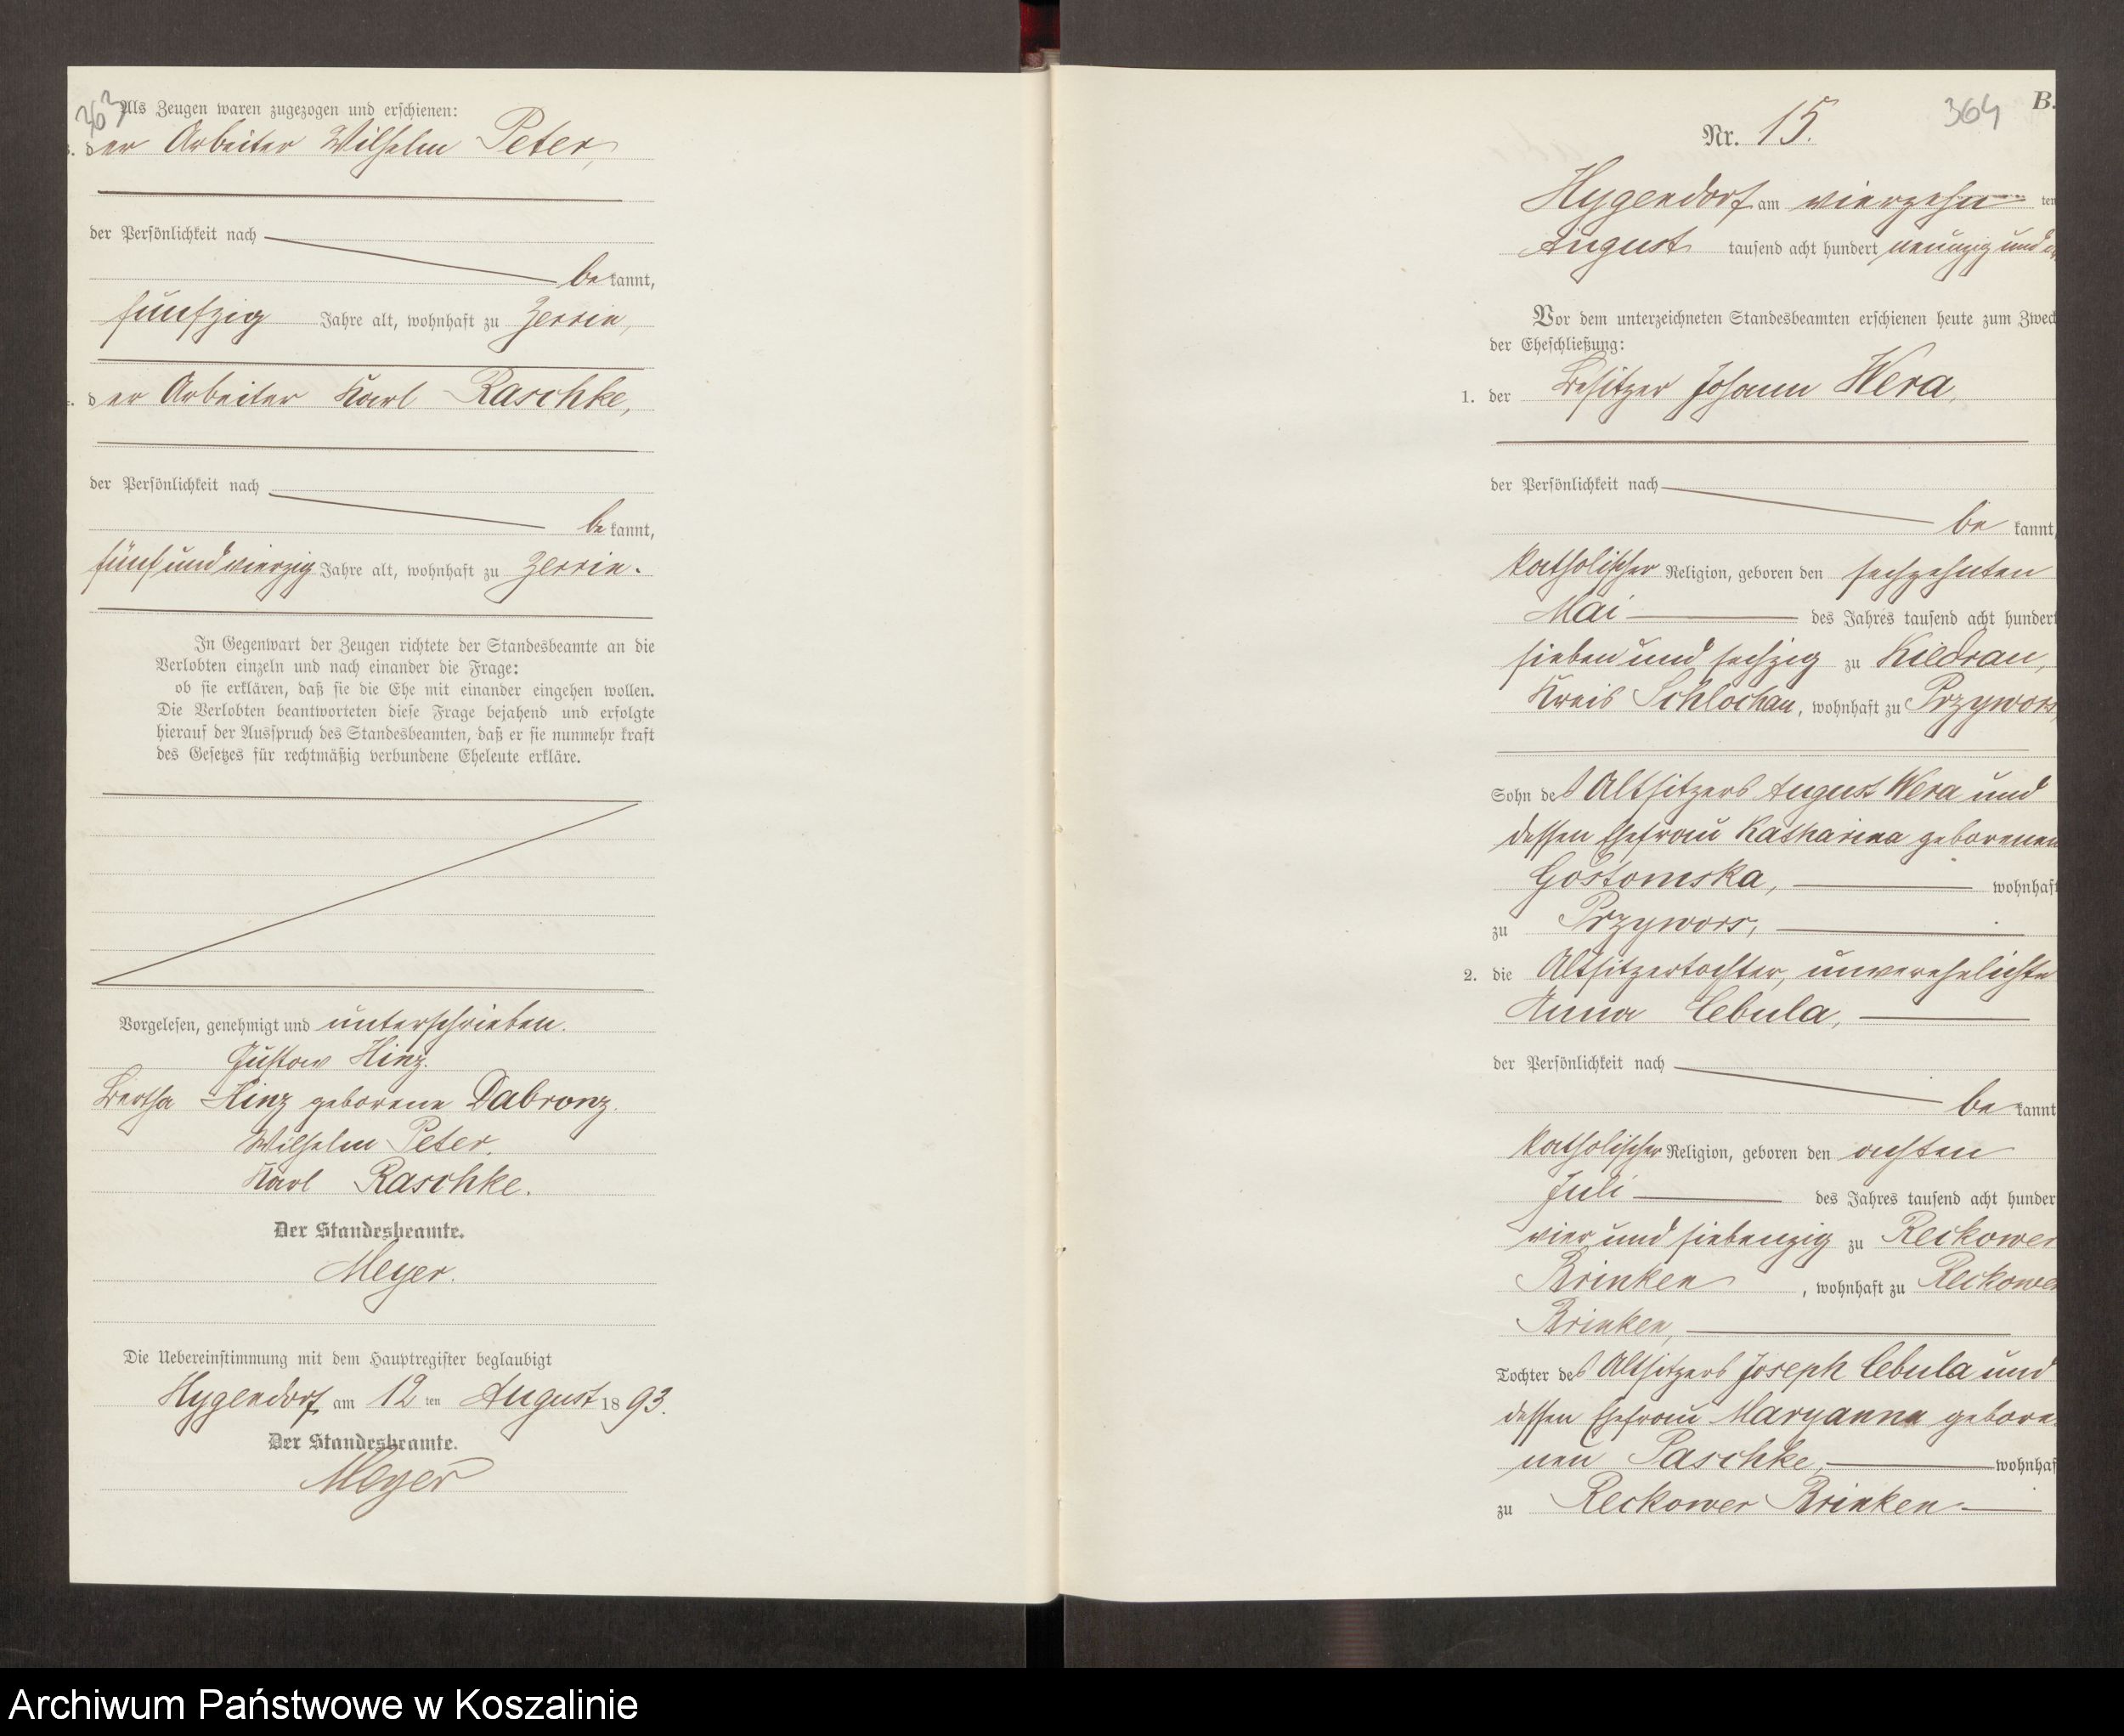 363
Als Zeugen waren zugezogen und erschienen:
der Arbeiter Wilhelm Peter,
der Persönlichkeit nach
bekannt,
fünfzig Jahre alt, wohnhaft zu Zerrin,
der Arbeiter Karl Raschke,
der Persönlichkeit nach
bekannt,
fünf und vierzig Jahre alt, wohnhaft zu Zerrin.
In Gegenwart der Zeugen richtete der Standesbeamte an die
Verlobten einzeln und nach einander die Frage:
ob sie erklären, daß sie die Ehe mit einander eingehen wollen.
Die Verlobten beantworteten diese Frage bejahend und erfolgte
hierauf der Ausspruch des Standesbeamten, daß er sie nunmehr kraft
des Gesetzes für rechtmäßig verbundene Eheleute erkläre.
Vorgelesen, genehmigt und unterschrieben.
Gustav Hinz.
Bertha Hinz geborene Dabronz.
Wilhelm Peter.
Karl Raschke.
Der Standesbeamte.
Meyer.
Die Uebereinstimmung mit dem Hauptregister beglaubigt
Hygendorf am 12 ten August 1893.
Der Standesbeamte.
Meyer
B.
364
Nr. 15.
Hygendorf am vierzehn ten
August tausend acht hundert neunzig und
Vor dem unterzeichneten Standesbeamten erschienen heute zum Zweck
der Eheschließung:
1. der Besitzer Johann Wera,
der Persönlichkeit nach
be kannt,
katholischer Religion, geboren den sechzehnten
Mai des Jahres tausend acht hundert
sieben und sechzig zu Kiedrau,
Kreis Schlochau, wohnhaft zu Przywors
Sohn des Altsitzers August Wera und
dessen Ehefrau Katharina geborenen
Gostomska, wohnhaft
zu Przywors,
2. die Altsitzertochter, unverehelichte
Anna Cebula,
der Persönlichkeit nach
be kannt
katholischer Religion, geboren den achten
Juli des Jahres tausend acht hunder
vier und siebenzig zu Reckower
Brinken, wohnhaft zu Reckower
Brinken,
Tochter des Altsitzers Joseph Cebula und
dessen Ehefrau Maryanna gebore
nen Paschke, wohnhaf
zu Reckower Brinken
Archiwum Państwowe w Koszalinie